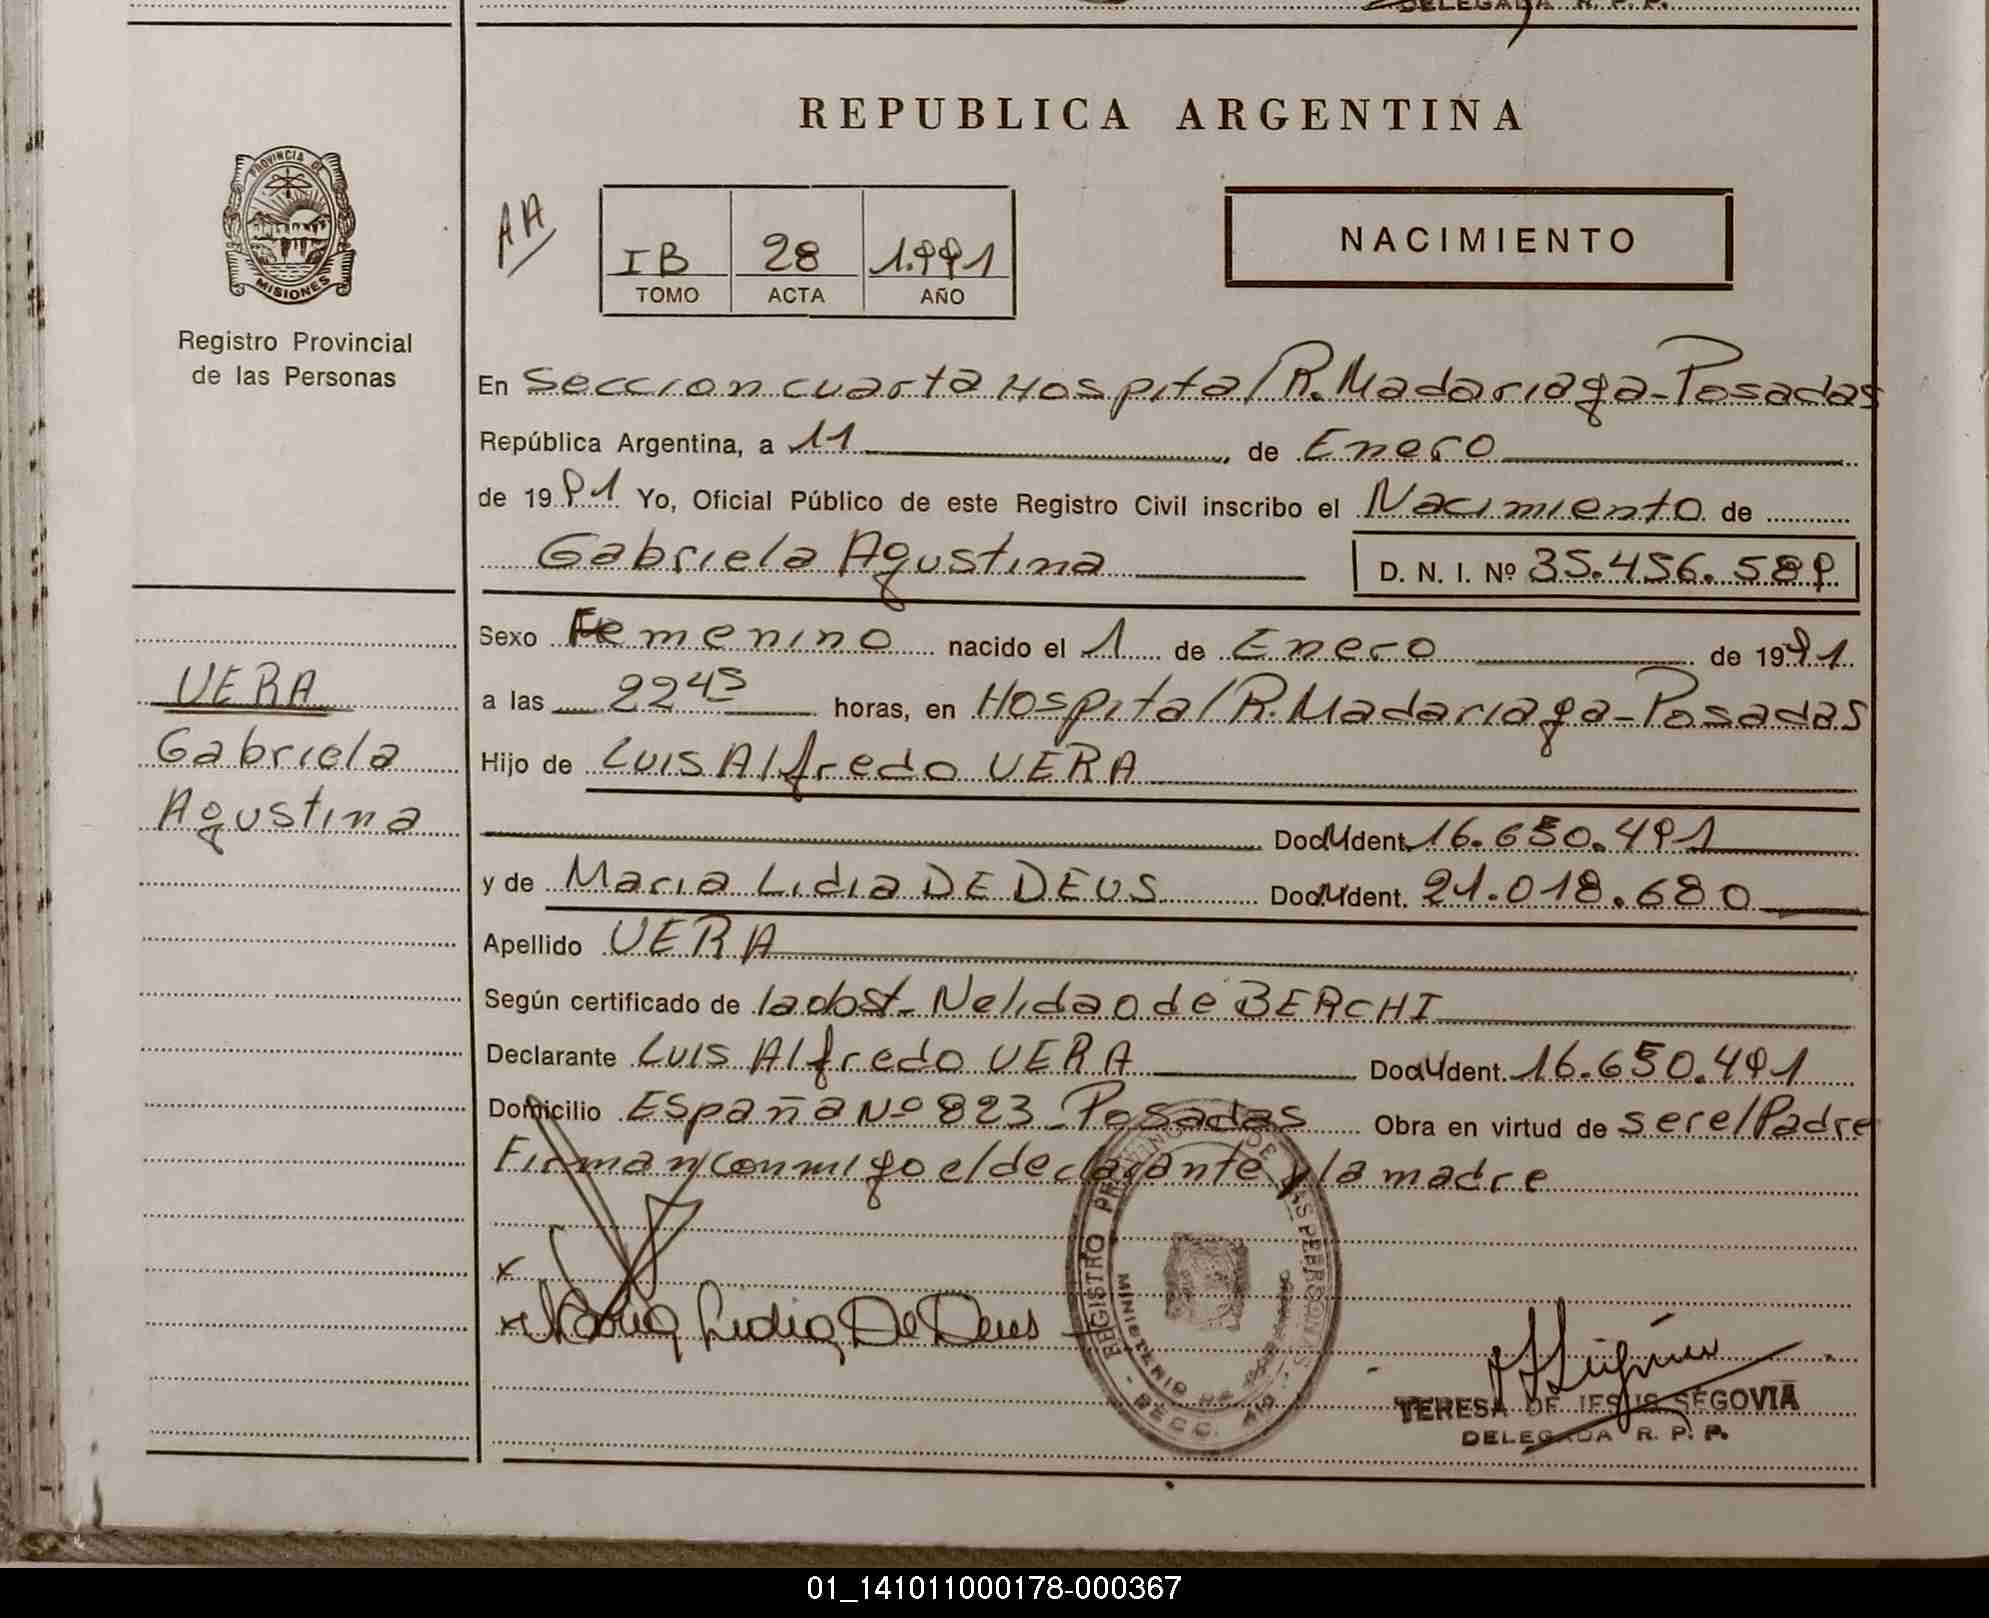 DELEGADA R. P. P.
REPUBLICA ARGENTINA
PROVINCIA DE
MISIONES
Registro Provincial
de las Personas
AA
IB 28 1.991
TOMO ACTA AÑO
NACIMIENTO
En Seccion cuarta Hospital R. Madariaga - Posadas
República Argentina, a 11 , de Enero
de 1991 Yo, Oficial Público de este Registro Civil inscribo el Nacimiento de
Gabriela Agustina D. N. I. Nº 35.456.589
Sexo Femenino nacido el 1 de Enero de 1991
a las 22 45 horas, en Hospital R. Madariaga - Posadas
Hijo de Luis Alfredo VERA
Doc. Ident. 16.650.491
y de Maria Lidia DE DEUS Doc. Ident. 21.018.680
Apellido VERA
Según certificado de la obst. Nelida O de BERCHI
Declarante Luis Alfredo VERA Doc. Ident. 16.650.491
Domicilio España Nº 823 - Posadas Obra en virtud de ser el Padre
Firman conmigo el declarante y la madre
VERA
Gabriela
Agustina
x
x Maria Lidia De Deus
REGISTRO PROVINCIAL DE LAS PERSONAS
MINISTERIO DE GOBIERNO
SECC. 4ta
TERESA DE JESUS SEGOVIA
DELEGADA R. P. P.
01_141011000178-000367